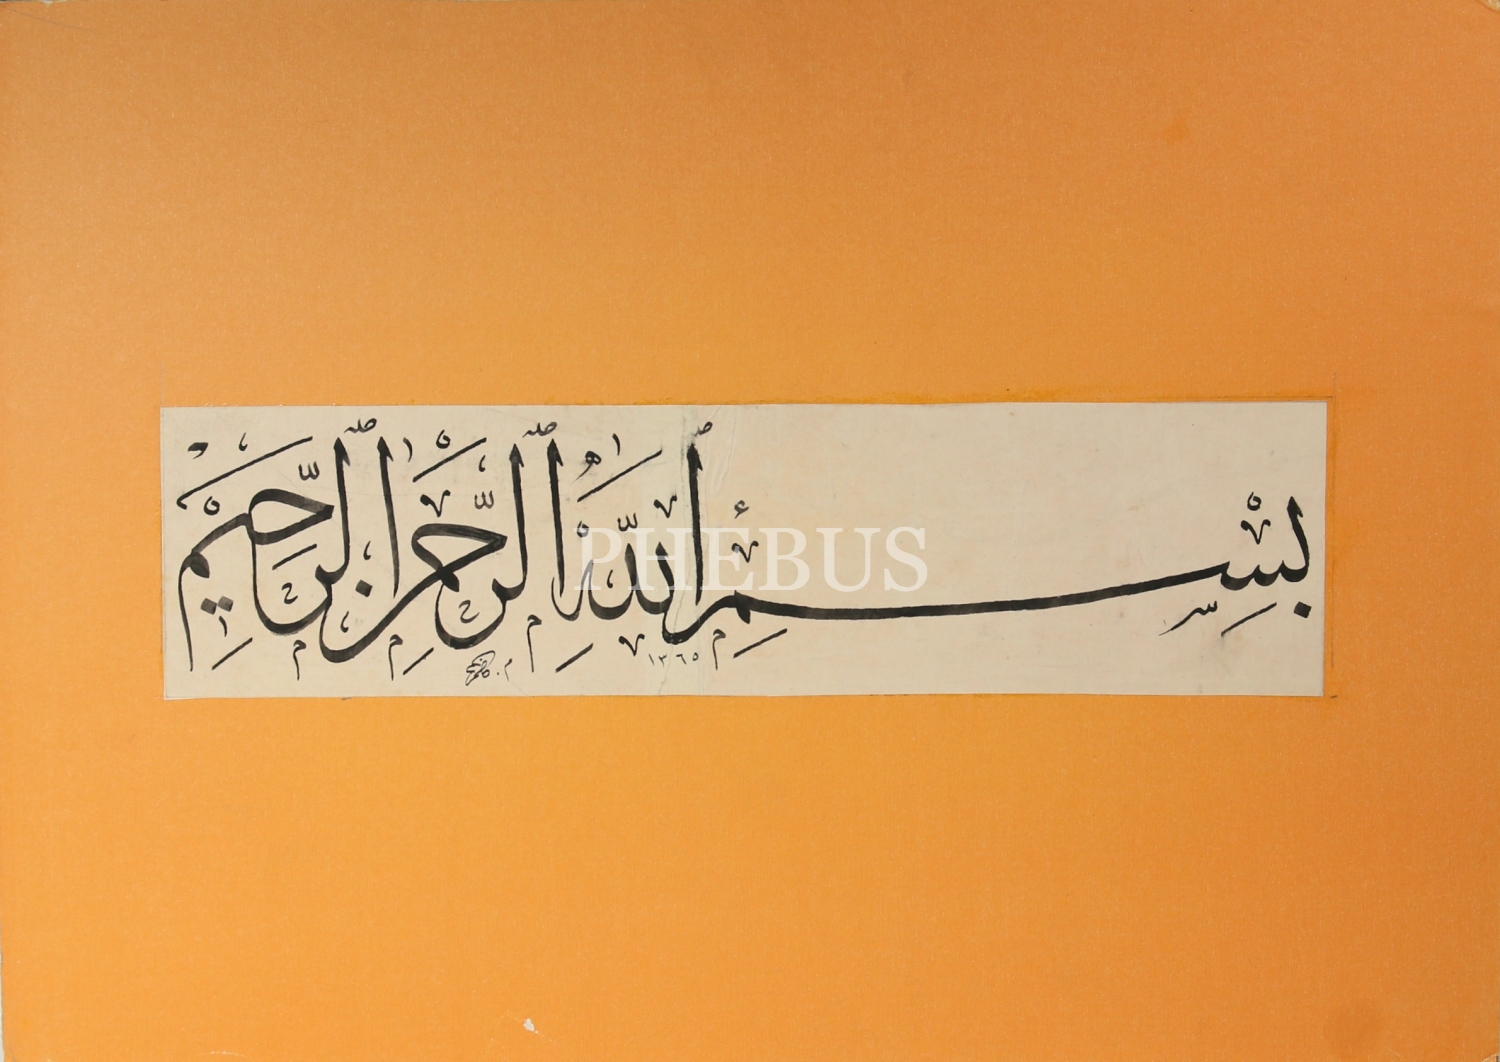 بِسْمِ ٱللَّهِ ٱلرَّحْمَٰنِ ٱلرَّحِيمِ
١٣٦٥
PHEBUS